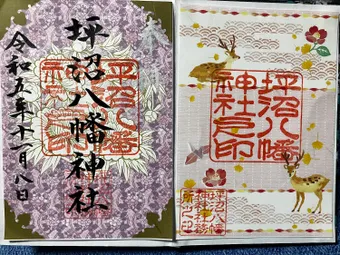 奉拝
坪沼八幡神社
令和五年十一月八日
坪沼八幡
神社之印
坪沼八幡
神社之印